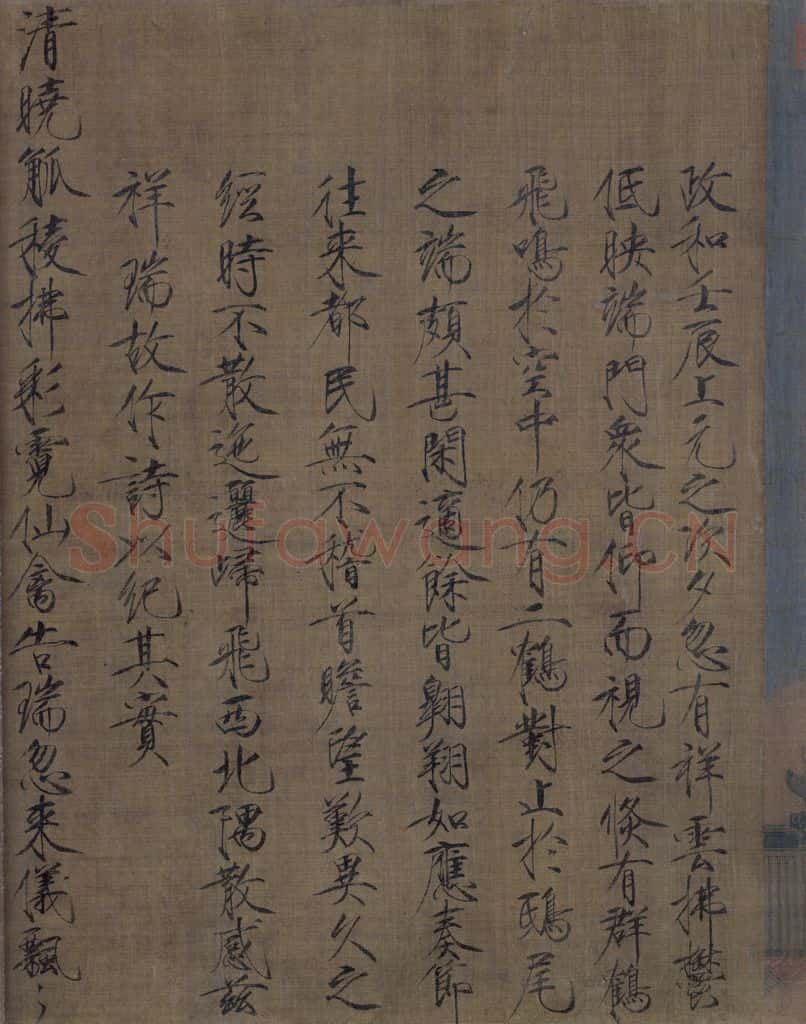 政和壬辰上元之次夕忽有祥雲拂鬱
低映端門衆皆仰而視之倏有群鶴
飛鳴於空中仍有二鶴對止於鴟尾
之端頗甚閑適餘皆翱翔如應奏節
往來都民無不稽首瞻望歎異久之
經時不散迤邐歸飛西北隅散感茲
祥瑞故作詩以紀其實
清曉觚稜拂彩霓仙禽告瑞忽來儀飄〻
Shufawang.CN